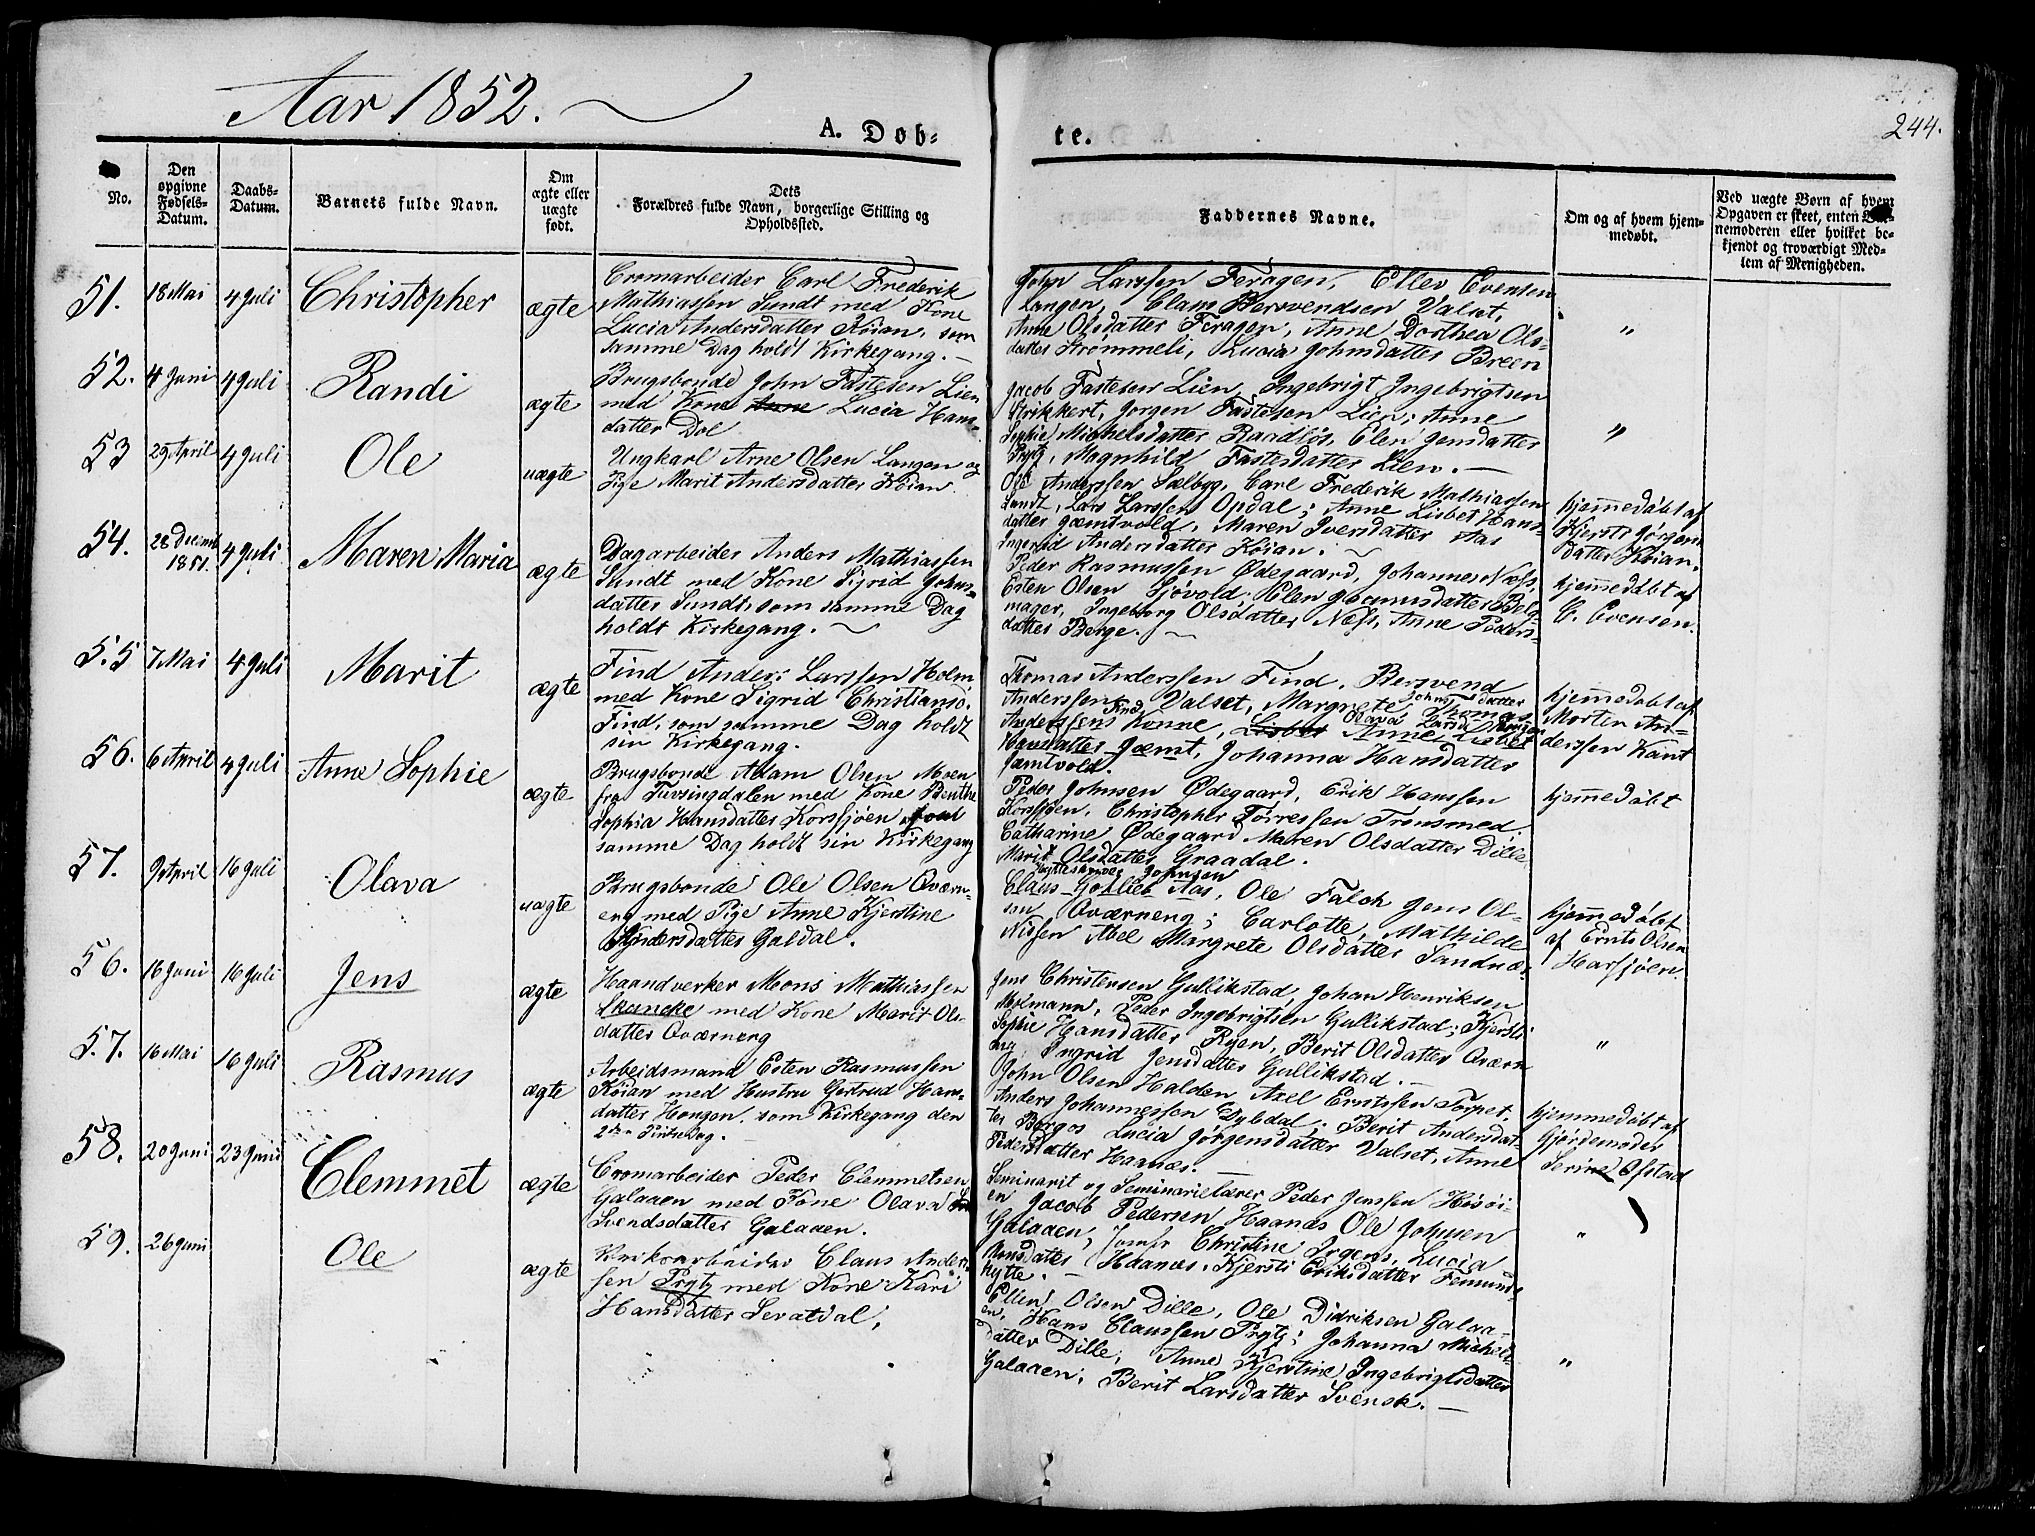 Aar 1852.
A. Døb-
te.
244.
No.
Den opgivne Fødsels-Datum.
Daabs-Datum.
Barnets fulde Navn.
Om ægte eller uægte født.
Dets Forældres fulde Navn, borgerlige Stilling og Opholdssted.
Faddernes Navne.
Om og af hvem hjem-
medøbt.
Ved uægte Børn af hvem
Opgaven er skeet, enten Bar-
nemoderen eller hvilket be-
kjendt og troværdigt Med-
lem af Menigheden.
51. 18 Mai 4 Juli Christopher ægte
Cromarbeider Carl Frederik
Mathiassen Sundt med Kone
Lucia Andersdatter Köian, som
samme Dag holdt Kirkegang. —
John Larssen Feragen, Ellev Evensen
Langen, Claus Bersvendsen Valset,
Anne Olsdatter Feragen, Anne Dorthea Ols-
datter Strømmeli, Lucia Johnsdatter Breen
"
52. 4 Juni 4 Juli Randi ægte
Brugsbonde John Fastesen Lien
med Kone Anne Lucia Hans-
datter Dal
Jacob Fastesen Lien, Ingebrigt Ingebrigtsen
Strikkert, Jørgen Fastesen Lien; Anne
Sophie Michelsdatter Raadløs, Elen Jensdatter
Prytz, Magnhild Fastesdatter Lien. —
"
53 29 April 4 Juli Ole uægte
Ungkarl Arne Olsen Langen og
Pige Marit Andersdatter Köian.
Ole Anderssen Sælbyg, Carl Frederik Mathiassen
Sundt, Lars Larssen Opdal; Anne Lisbet Hans-
datter Jæmtvold, Maren Iversdatter Aas
Ingerid Andersdatter Köian. —
hjemmedøbt af
Kjersti Jørgens
datter Köian.
54. 28 Decemb 1851. 4 Juli Maren Maria ægte
Dagarbeider Anders Mathiassen
Sundt med Kone Sigrid Johns-
datter Sundt, som samme Dag
holdt Kirkegang. —
Peder Rasmussen Ødegaard, Johannes Næss,
Esten Olsen Sjøvold,
mager, Ingeborg Olsdatter Næss, Anne Peders-
datter Berge. —
hjemmedøbt af
C. Evensen.
55 7 Mai 4 Juli Marit ægte
Find Anders Larssen Holm
med Kone Sigrid Christiansd.
Find, som samme Dag holdt
sin Kirkegang.
Thomas Anderssen Find, Bersvend
Anderssen Valset, Margrete Johnsdatter
Anderssens Konne, Lisbet Anne Lisbet
Hansdatter Jæmt, Johanna Hansdatter
Jæmtvold.
hjemmedøbt af
Morten An-
derssen Kant
56. 6 April 4 Juli Anne Sophie ægte
Brugsbonde Adam Olsen Moen
fra Tufsingdalen med Kone Benthe
Sophia Hansdatter Korssjøen som
samme Dag holdt sin Kirkegang
Peder Johnsen Ødegaard, Erik Hanssen
Korssjøen, Christopher Torressen Tronsmed
Catharine Ødegaard Maren Olsdatter Dille
Marit Olsdatter Graadal.
hjemmedøbt
57. 9 April 16 Juli Olava uægte
Brugsbonde Ole Olsen Qværn-
eng med Pige Anne Kjerstine
Andersdatter Galdal.
Hytteskriver Johnsen
Claus Gotlieb Aas, Ole Falch Jens Ol-
sen Qværneng; Carlotte, Mathilde
Nissen Abel Margrete Olsdatter Sandnæs
hjemmedøbt
af Ernts Olsen
Harsjøen
56. 16 Juni 16 Juli Jens ægte
Haandverker Mons Mathiassen
Skancke med Kone Marit Ols-
datter Qværneng
Jens Christensen Gullikstad, Johan Henriksen
Molmann, Peder Ingebrigtsen Gullikstad; Kjersti
Sophie Hansdatter Ryen, Berit Olsdatter Qværn
eng, Ingrid Jensdatter Gullikstad. —
"
57. 16 Mai 16 Juli Rasmus ægte
Arbeidsmand Esten Rasmussen
Köian med Hustru Gertrud Hans-
datter Hougen, som Kirkegang den
2den Pintsedag.
John Olsen Halden, Axel Erntssen Torpet.
Anders Johannessen Dybdal. Berit Andersdat-
ter Borgos Lucia Jørgensdatter Valset, Anne
Pedersdatter Haanæs. —
hjemmedøbt af
Gjordemoder
Serine Øfstad
58. 20 Juni 23 Juni Clemmet ægte
Cromarbeider Peder Clemmetsen
Galaaen med Kone Olava
Svendsdatter Galaaen.
Seminarist og Seminarielærer Peder Jenssen Hisöi-
en Jacob Pedersen Haanæs Ole Johnsen
Galaaen; Jomfr Christine Irgens, Lucia
Monsdatter Haanæs, Kjersti Eriksdatter Femund-
hytte. —
"
59. 26 Juni Ole ægte
Claus Ander-
sen Prytz med Kone Kari
Hansdatter Sevatdal;
Ellend Olsen Dille, Ole Didriksen Galaa-
en, Hans Claussen Prytz; Johanna Michels-
datter Dille, Anne Kjerstine Ingebrigtsdatter
Galaaen; Berit Larsdatter Svensk. —
"